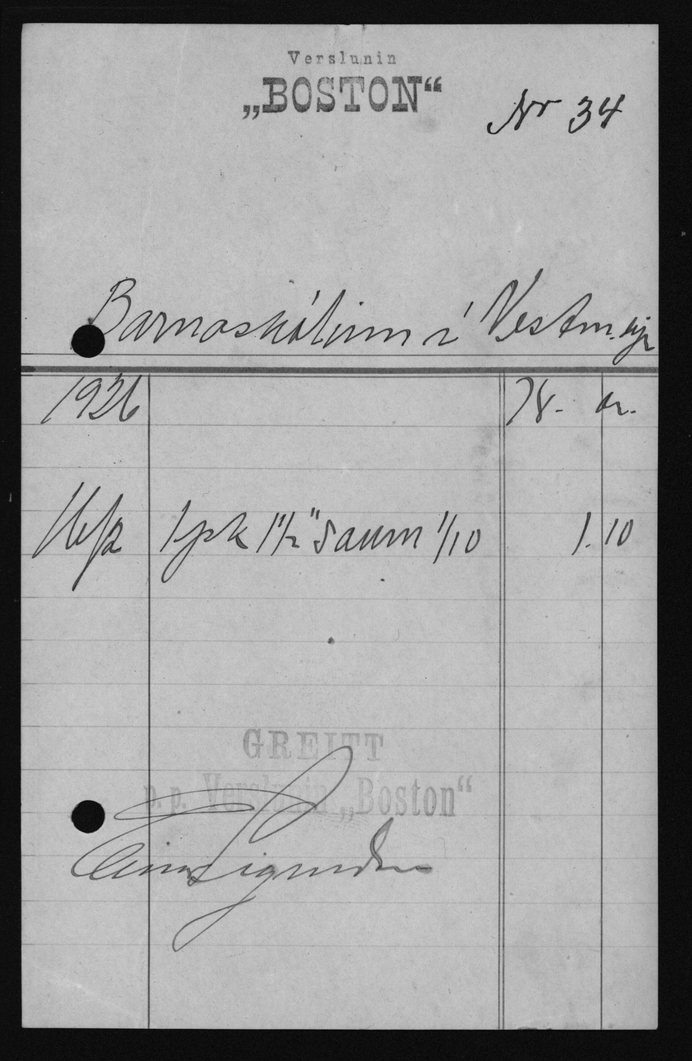 Verslunin
„BOSTON“
Nr 34
Barnaskólinn í Vestm.eyj
1926
Kr. au.
1 pk 1 1/2" saum 1/10 1.10
GREITT
p. p. Verslunin „Boston“